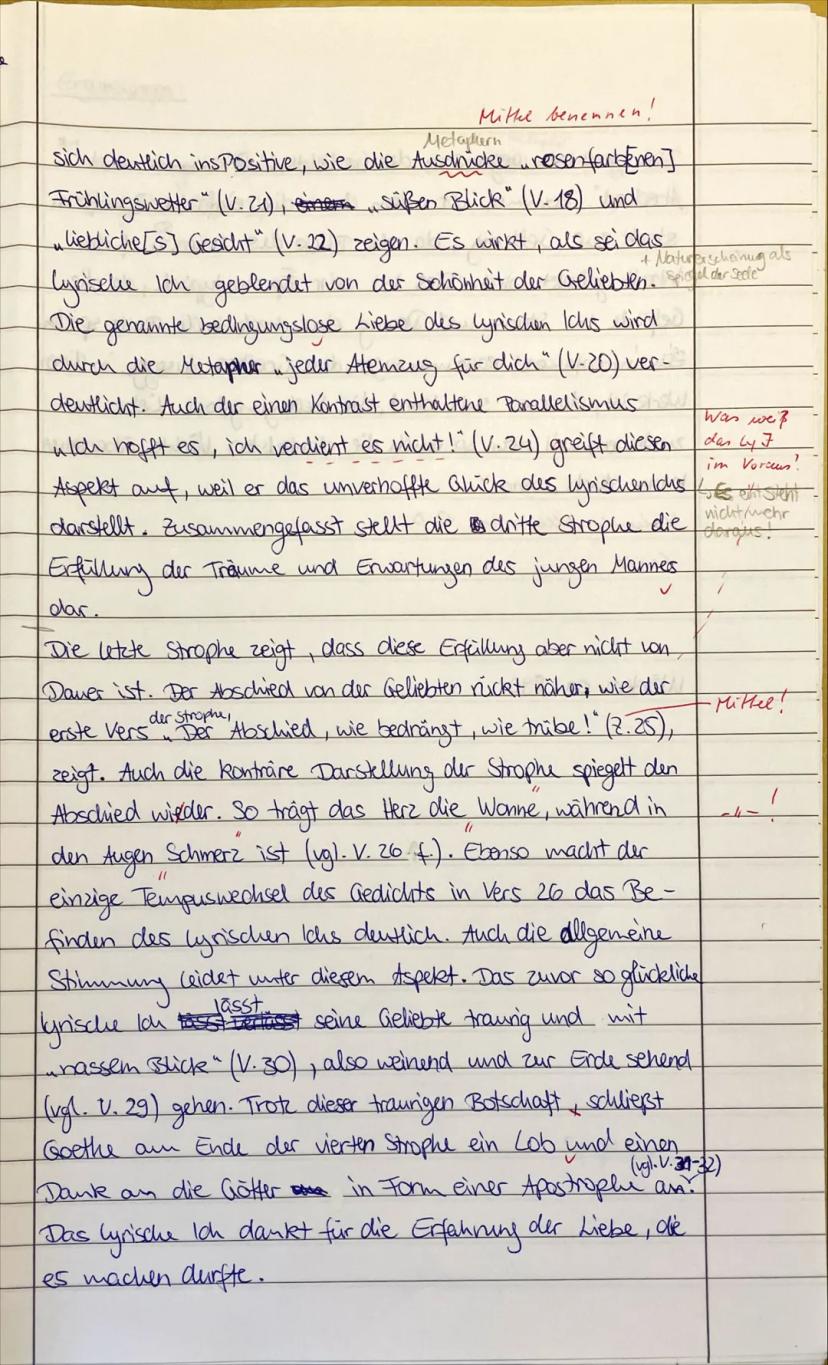 Mittel benennen!
Metaphern
sich deutlich ins Positive, wie die Ausdrücke „rosenfarb[enen]
Frühlingswetter“ (V. 21), „süßen Blick“ (V. 18) und
„liebliche[s] Gesicht“ (V. 22) zeigen. Es wirkt, als sei das
+ Naturerscheinung als
Spiegel der Seele
lyrische Ich geblendet von der Schönheit der Geliebten.
Die genannte bedingungslose Liebe des lyrischen Ichs wird
durch die Metapher „jeder Atemzug für dich“ (V. 20) ver-
deutlicht. Auch der einen Kontrast enthaltene Parallelismus
„Ich hofft es, ich verdient es nicht!“ (V. 24) greift diesen
Aspekt auf, weil er das unverhoffte Glück des lyrischen Ichs
darstellt. Zusammengefasst stellt die dritte Strophe die
Erfüllung der Träume und Erwartungen des jungen Mannes
dar.
Was weiß
das Ly I
im Voraus?
↳ Es
nicht mehr
daraus!
Die letzte Strophe zeigt, dass diese Erfüllung aber nicht von
Dauer ist. Der Abschied von der Geliebten rückt näher, wie der
erste Vers der Strophe, „Der Abschied, wie bedrängt, wie trübe!“ (Z. 25),
Mittel!
zeigt. Auch die konträre Darstellung der Strophe spiegelt den
Abschied wieder. So trägt das Herz die "Wonne", während in
-"- !
den Augen "Schmerz" ist (vgl. V. 26 f.). Ebenso macht der
einzige Tempuswechsel des Gedichts in Vers 26 das Be-
finden des lyrischen Ichs deutlich. Auch die allgemeine
Stimmung leidet unter diesem Aspekt. Das zuvor so glückliche
lyrische Ich lässt seine Geliebte traurig und mit
„nassem Blick“ (V. 30), also weinend und zur Erde sehend
(vgl. V. 29) gehen. Trotz dieser traurigen Botschaft, schließt
Goethe am Ende der vierten Strophe ein Lob und einen
Dank an die Götter in Form einer Apostrophe an (vgl. V. 31-32).
Das lyrische Ich dankt für die Erfahrung der Liebe, die
es machen durfte.